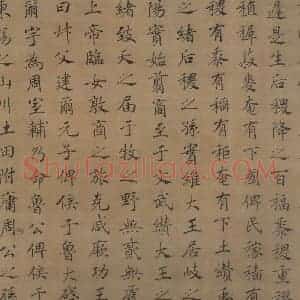 遲是生后稷降之百福黍稷重
稙稺菽麥奄有下國俾民稼穡有
稷有黍有稻有秬奄有下土纘
之緒后稷之孫實維大王居岐之
陽實始翦商至于文武纘大王之
緒致天之届于牧野無貳無
上帝臨女敦商之旅克咸厥功王
曰叔父建爾元子俾侯于魯大啓
爾宇為周室輔乃命魯公俾侯于
東錫之山川土田附庸周公之孫